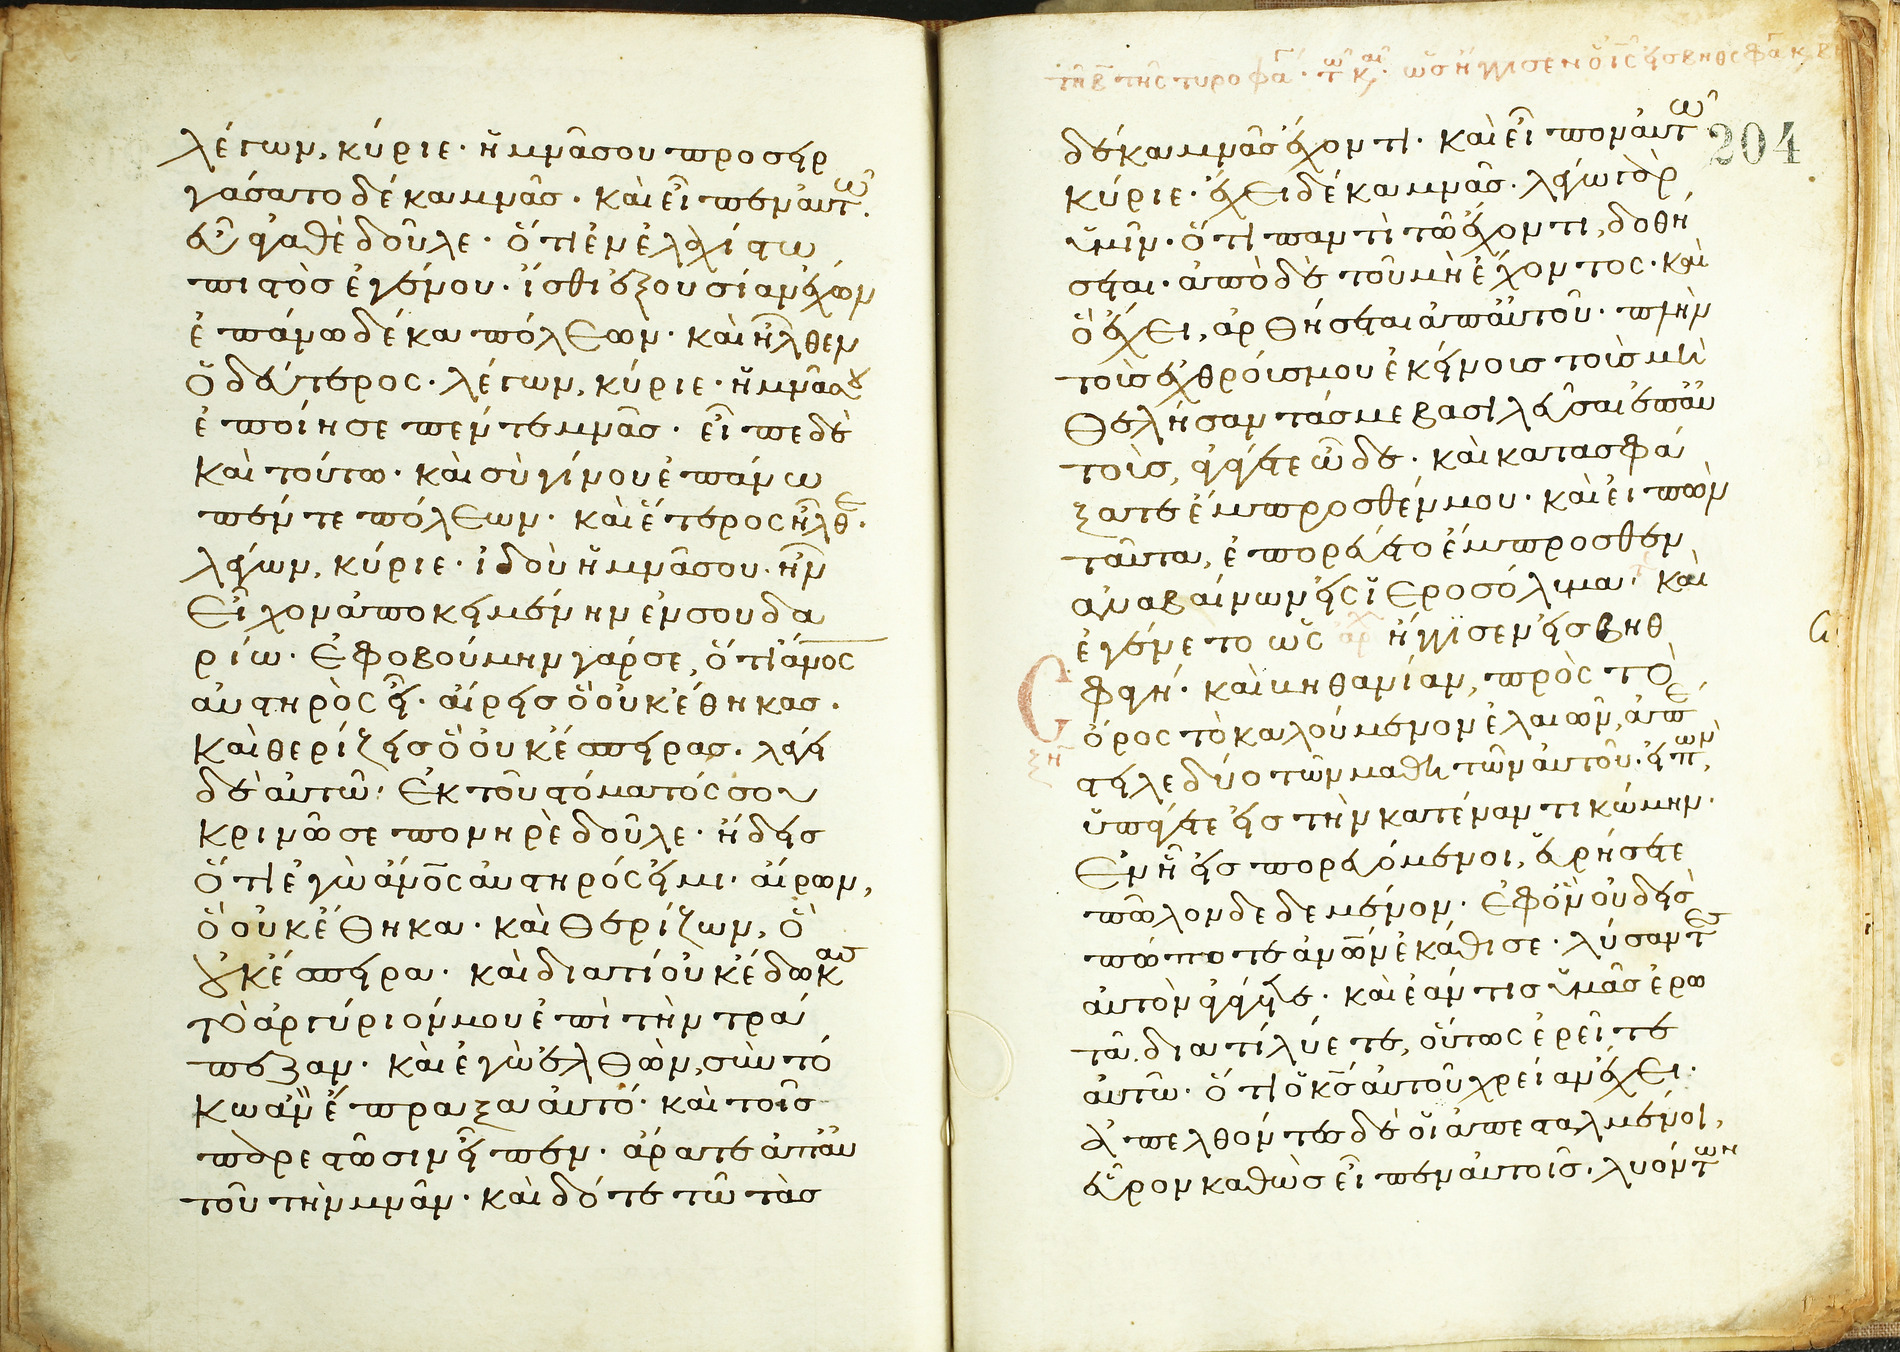 λέγων, κύριε· ἡ μνᾶ σου προσειρ
γάσατο δέκα μνᾶς· καὶ εἶπεν αὐτῶ·
εὖ ἀγαθὲ δοῦλε· ὅτι ἐν ἐλαχίστω
πιστὸς ἐγένου· ἴσθι ἐξουσίαν ἔχων
ἐπάνω δέκα πόλεων· καὶ ἦλθεν
ὁ δεύτερος· λέγων, κύριε· ἡ μνᾶ σου
ἐποίησε πέντε μνᾶς· εἶπε δὲ
καὶ τούτω· καὶ σὺ γίνου ἐπάνω
πέντε πόλεων· καὶ ἕτερος ἦλθε·
λέγων, κύριε· ἰδοὺ ἡ μνᾶ σου· ἣν
εἶχον ἀποκειμένην ἐν σουδα
ρίω· ἐφοβούμην γάρ σε, ὅτι ἄνος
αὐστηρὸς εἶ· αἴρεις ὃ οὐκ ἔθηκας·
καὶ θερίζεις ὃ οὐκ ἔσπειρας· λέγει
δὲ αὐτῶ· ἐκ τοῦ στόματός σου
κρινῶ σε πονηρὲ δοῦλε· ἤδεις
ὅτι ἐγὼ ἄνος αὐστηρός εἰμι· αἴρων,
ὃ οὐκ ἔθηκα· καὶ θερίζων, ὃ
οὐκ ἔσπειρα· καὶ διατί οὐκ ἔδωκας
τὸ ἀργύριόν μου ἐπὶ τὴν τρά
πεζαν· καὶ ἐγὼ ἐλθὼν, σὺν τό
κω ἂν ἔπραξα αὐτό· καὶ τοῖς
παρεστῶσιν εἶπεν· ἄρατε ἀπ' αὐ
τοῦ τὴν μνᾶν· καὶ δότε τῶ τὰς
204
δέκα μνᾶς ἔχοντι· καὶ εἶπον αὐτῶ
κύριε· ἔχει δέκα μνᾶς· λέγω γὰρ
ὑμῖν· ὅτι παντὶ τῶ ἔχοντι, δοθή
σεται· ἀπὸ δὲ τοῦ μὴ ἔχοντος· καὶ
ὃ ἔχει, ἀρθήσεται ἀπ' αὐτοῦ· πλὴν
τοὺς ἐχθρούς μου ἐκείνους τοὺς μὴ
θελήσαντάς με βασιλεῦσαι ἐπ' αὐ
τοὺς, ἀγάγετε ὧδε· καὶ κατασφά
ξατε ἔμπροσθέν μου· καὶ εἰπὼν
ταῦτα, ἐπορεύετο ἔμπροσθεν
ἀναβαίνων εἰς ἱεροσόλυμα· καὶ
ἐγένετο ὡς ἤγγισεν εἰς βηθ
σφαγή· καὶ βηθανίαν, πρὸς τὸ
ὄρος τὸ καλούμενον ἐλαιῶν, ἀπέ
στειλε δύο τῶν μαθητῶν αὐτοῦ· εἰπὼν,
ὑπάγετε εἰς τὴν κατέναντι κώμην·
ἐν ἧ εἰσπορευόμενοι, εὑρήσετε
πῶλον δεδεμένον· ἐφ' ὃν οὐδεὶς
πώποτε ἀνων ἐκάθισε· λύσαντες
αὐτὸν ἀγάγετε· καὶ ἐάν τις ὑμᾶς ἐρω
τᾶ, διατί λύετε, οὕτως ἐρεῖτε
αὐτῶ· ὅτι ὁ κς αὐτοῦ χρείαν ἔχει·
ἀπελθόντες δὲ οἱ ἀπεσταλμένοι,
εὗρον καθὼς εἶπεν αὐτοῖς· λυόντων